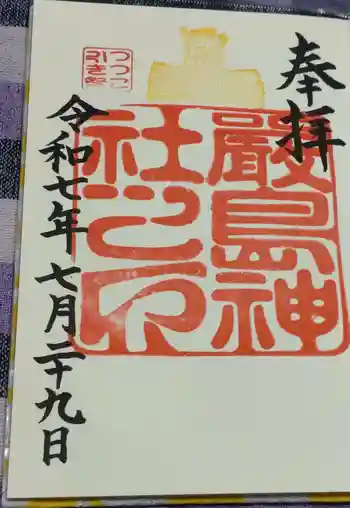 奉拝
嚴島神
社之印
つつこ
引き祭
令和七年七月二十九日